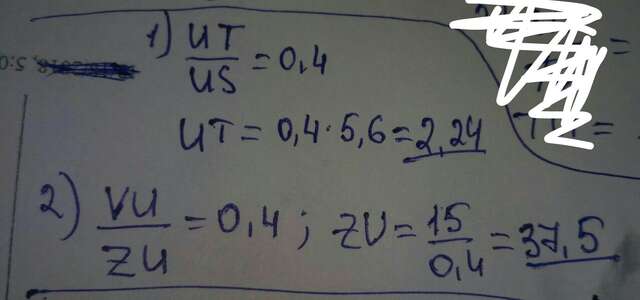 1) UT/US = 0,4
UT = 0,4 · 5,6 = 2,24
2) VU/ZU = 0,4 ; ZU = 15/0,4 = 37,5